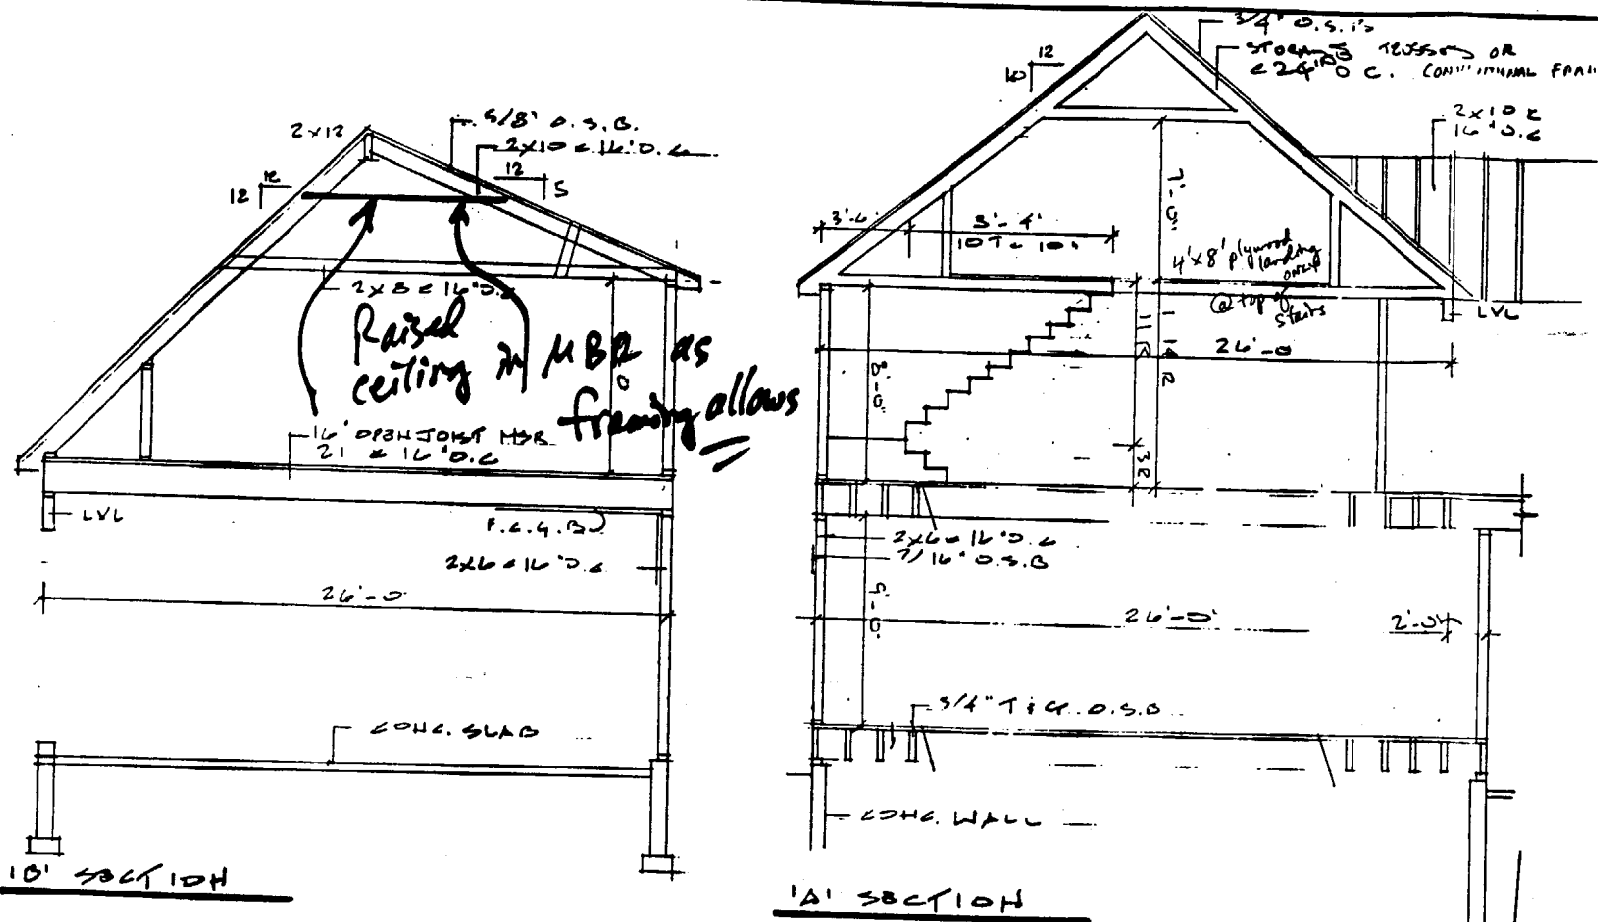 2x12
5/8" O.S.B.
2x10 @ 16" O.C.
12
12
12
5
2x8 @ 16" O.C.
Raised
ceiling in MBR as
framing allows
16" OPEN JOIST
@ 16" O.C.
LVL
F.C.G.B.
2x6 @ 16" O.C.
26'-0"
CONC. SLAB
'B' SECTION
3/4" O.S.B.
12
10
TRUSSES OR
@ 24" O.C. CONVENTIONAL
2x10 @
16" O.C.
7'-0"
10T @ 10"
4'x8' plywood
landing
ONLY
@ top of
stairs
LVL
26'-0"
8'-0"
3R
2x6 @ 16" O.C.
7/16" O.S.B
9'-0"
26'-0"
2'-0"
3/4" T & G. O.S.B
CONC. WALL
'A' SECTION